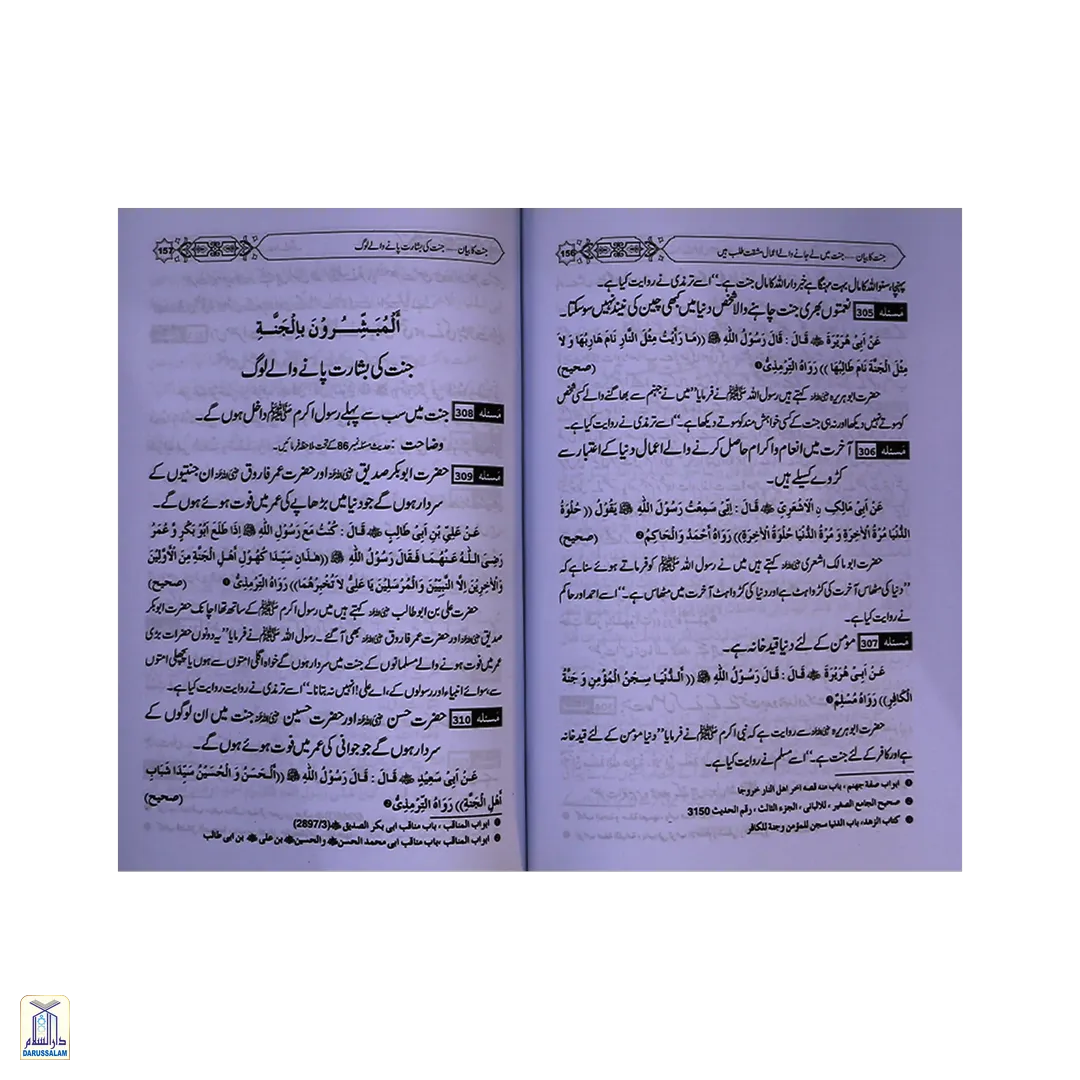 جنت کا بیان ---- جنت میں لے جانے والے اعمال مشقت طلب ہیں
156
پہنچا، سنو اللہ کا مال بہت مہنگا ہے خبردار اللہ کا مال جنت ہے۔‘‘ اسے ترمذی نے روایت کیا ہے۔
مسئلہ 305 نعمتوں بھری جنت چاہنے والا شخص دنیا میں کبھی چین کی نیند نہیں سو سکتا۔
عَنْ اَبِیْ هُرَيْرَةَ ؓ قَالَ : قَالَ رَسُوْلُ اللهِ ﷺ ((مَا رَأَيْتُ مِثْلَ النَّارِ نَامَ هَارِبُهَا وَ لاَ
مِثْلَ الْجَنَّةِ نَامَ طَالِبُهَا )) رَوَاهُ التِّرْمِذِيُّ ❶ (صحيح)
حضرت ابو ہریرہ ؓ کہتے ہیں رسول اللہ ﷺ نے فرمایا ’’میں نے جہنم سے بھاگنے والے کسی شخص
کو سوتے نہیں دیکھا اور نہ ہی جنت کے کسی خواہش مند کو سوتے دیکھا ہے۔‘‘ اسے ترمذی نے روایت کیا ہے۔
مسئلہ 306 آخرت میں انعام و اکرام حاصل کرنے والے اعمال دنیا کے اعتبار سے
کڑوے کسیلے ہیں۔
عَنْ اَبِیْ مَالِكِ نِ الْاَشْعَرِيِّ ؓ قَالَ : اِنِّیْ سَمِعْتُ رَسُوْلَ اللهِ ﷺ يَقُوْلُ (( حُلْوَةُ
الدُّنْيَا مُرَّةُ الْاٰخِرَةِ وَ مُرَّةُ الدُّنْيَا حُلْوَةُ الْاٰخِرَةِ)) رَوَاهُ اَحْمَدُ وَالْحَاكِمُ ❷ (صحيح)
حضرت ابو مالک اشعری ؓ کہتے ہیں میں نے رسول اللہ ﷺ کو فرماتے ہوئے سنا ہے کہ
’’دنیا کی مٹھاس آخرت کی کڑواہٹ ہے اور دنیا کی کڑواہٹ آخرت میں مٹھاس ہے۔‘‘ اسے احمد اور حاکم
نے روایت کیا ہے۔
مسئلہ 307 مومن کے لئے دنیا قید خانہ ہے۔
عَنْ اَبِیْ هُرَيْرَةَ ؓ قَالَ : قَالَ رَسُوْلُ اللهِ ﷺ (( اَلدُّنْيَا سِجْنُ الْمُؤْمِنِ وَ جَنَّةُ
الْكَافِرِ)) رَوَاهُ مُسْلِمٌ ❸
حضرت ابو ہریرہ ؓ سے روایت ہے کہ نبی اکرم ﷺ نے فرمایا ’’دنیا مومن کے لئے قید خانہ
ہے اور کافر کے لئے جنت ہے۔‘‘ اسے مسلم نے روایت کیا ہے۔
❶ ابواب صفة جهنم ، باب منه قصه اخر اهل النار خروجا
❷ صحيح الجامع الصغير ، للالبانى ، الجزء الثالث ، رقم الحديث 3150
❸ كتاب الزهد، باب الدنيا سجن للمؤمن وجنة للكافر
جنت کا بیان ---- جنت کی بشارت پانے والے لوگ
157
أَلْمُبَشِّرُوْنَ بِالْجَنَّةِ
جنت کی بشارت پانے والے لوگ
مسئلہ 308 جنت میں سب سے پہلے رسول اکرم ﷺ داخل ہوں گے۔
وضاحت : حدیث مسئلہ نمبر 86 کے تحت ملاحظہ فرمائیں۔
مسئلہ 309 حضرت ابوبکر صدیق ؓ اور حضرت عمر فاروق ؓ ان جنتیوں کے
سردار ہوں گے جو دنیا میں بڑھاپے کی عمر میں فوت ہوئے ہوں گے۔
عَنْ عَلِيِّ بْنِ اَبِیْ طَالِبٍ ؓ قَالَ : كُنْتُ مَعَ رَسُوْلِ اللهِ ﷺ اِذَا طَلَعَ اَبُوْ بَكْرٍ وَّ عُمَرُ
رَضِيَ اللهُ عَنْهُمَا فَقَالَ رَسُوْلُ اللهِ ﷺ ((هٰذَانِ سَيِّدَا كُهُوْلِ أَهْلِ الْجَنَّةِ مِنَ الْأَوَّلِيْنَ
وَالْاٰخِرِيْنَ اِلَّا النَّبِيِّيْنَ وَالْمُرْسَلِيْنَ يَا عَلِيُّ لاَ تُخْبِرْهُمَا)) رَوَاهُ التِّرْمِذِيُّ ❶ (صحيح)
حضرت علی بن ابو طالب ؓ کہتے ہیں میں رسول اکرم ﷺ کے ساتھ تھا اچانک حضرت ابوبکر
صدیق ؓ اور حضرت عمر فاروق ؓ بھی آ گئے۔ رسول اللہ ﷺ نے فرمایا ’’یہ دونوں حضرات بڑی
عمر میں فوت ہونے والے مسلمانوں کے جنت میں سردار ہوں گے خواہ اگلی امتوں سے ہوں یا پچھلی امتوں
سے سوائے انبیاء اور رسولوں کے، اے علی! انہیں نہ بتانا۔‘‘ اسے ترمذی نے روایت روایت کیا ہے۔
مسئلہ 310 حضرت حسن ؓ اور حضرت حسین ؓ جنت میں ان لوگوں کے
سردار ہوں گے جو جوانی کی عمر میں فوت ہوئے ہوں گے۔
عَنْ اَبِیْ سَعِيْدٍ ؓ قَالَ : قَالَ رَسُوْلُ اللهِ ﷺ ((اَلْحَسَنُ وَ الْحُسَيْنُ سَيِّدَا شَبَابِ
أَهْلِ الْجَنَّةِ)) رَوَاهُ التِّرْمِذِيُّ ❷ (صحيح)
❶ ابواب المناقب ، باب مناقب ابى بكر الصديق ؓ (2897/3)
❷ ابواب المناقب ،باب مناقب ابى محمد الحسن ؓ والحسين ؓ بن على ؓ بن ابى طالب
دارالسلام
DARUSSALAM